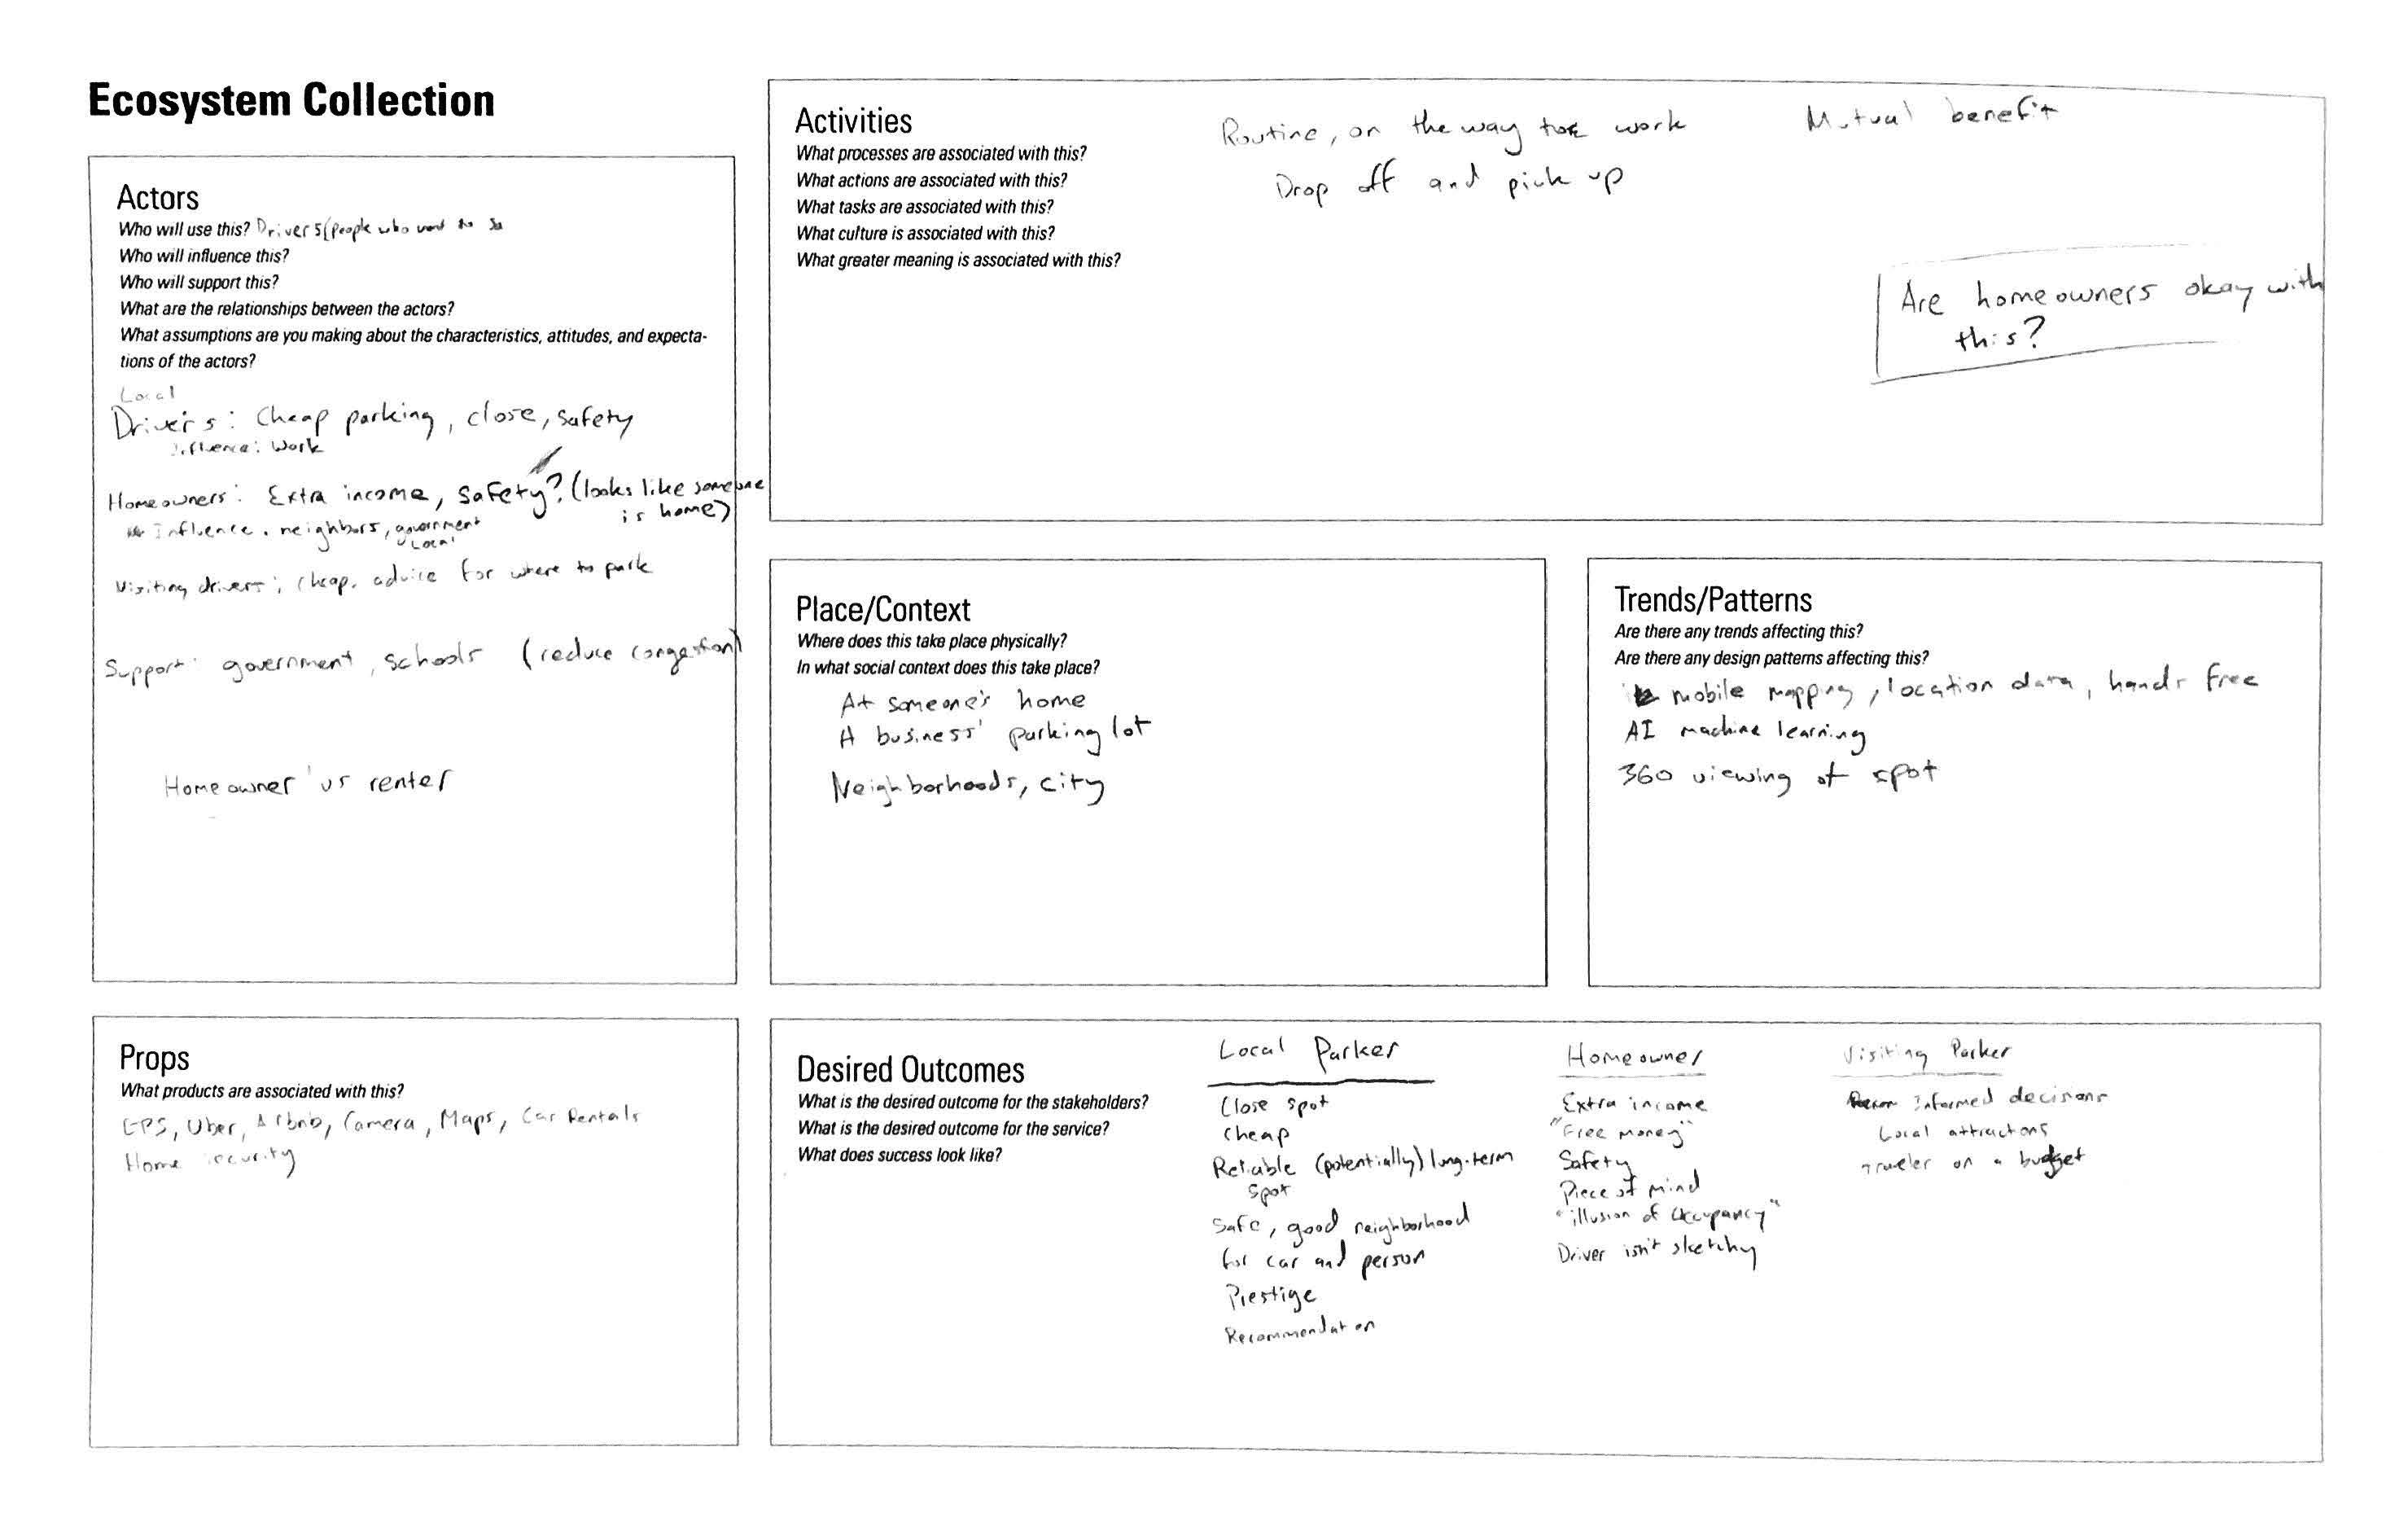 Ecosystem Collection
Actors
Who will use this? Drivers (people who
Who will influence this?
Who will support this?
What are the relationships between the actors?
What assumptions are you making about the characteristics, attitudes, and expecta-
tions of the actors?
Local
Drivers: Cheap parking, close, safety
influence: work
Homeowners: Extra income, safety? (looks like someone
is home)
Influence. neighbors, government
Local
Visiting drivers; cheap, advice for where to park
Support: government, schools (reduce congestion)
Homeowner vs renter
Activities
What processes are associated with this?
What actions are associated with this?
What tasks are associated with this?
What culture is associated with this?
What greater meaning is associated with this?
Routine, on the way to work
Drop off and pick up
Mutual benefit
Are homeowners okay with
this?
Place/Context
Where does this take place physically?
In what social context does this take place?
At someone's home
A business' parking lot
Neighborhoods, city
Trends/Patterns
Are there any trends affecting this?
Are there any design patterns affecting this?
mobile mapping, location data, hands free
AI machine learning
360 viewing of spot
Props
What products are associated with this?
GPS, Uber, Airbnb, Camera, Maps, Car Rentals
Home security
Desired Outcomes
What is the desired outcome for the stakeholders?
What is the desired outcome for the service?
What does success look like?
Local Parker
Close spot
Cheap
Reliable (potentially) long-term
spot
Safe, good neighborhood
for car and person
Prestige
Recommendation
Homeowner
Extra income
"Free money"
Safety
Piece of mind
"illusion of occupancy"
Driver isn't sketchy
Visiting Parker
Informed decisions
Local attractions
Traveler on a budget